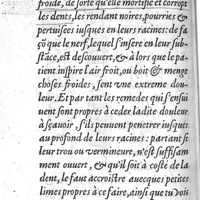 froide, de sorte qu'elle mortifie et corrõpt
les dents, les rendant noires, pourries &
pertuisees iusques en leurs racines: de fa
çõ que le nerf, lequel s'insere en leur sub-
stãce, est descouuert, & à lors que le pa-
tient inspire l'air froit, ou boit & menge
choses froides, sent vne extreme dou
leur. Et par tant les remedes qui s'ensui
uent sont propres à ceder ladite douleur
à sçauoir, s'ils peuuent penetrer iusques
au profond de leurs racines: partant si
leur trou ou vermineure, n'est suffisam
ment ouuert, & qu'il soit à coste de la
dent, le faut accroistre auecques petites
limes propres à ce faire, ainsi que tu vois